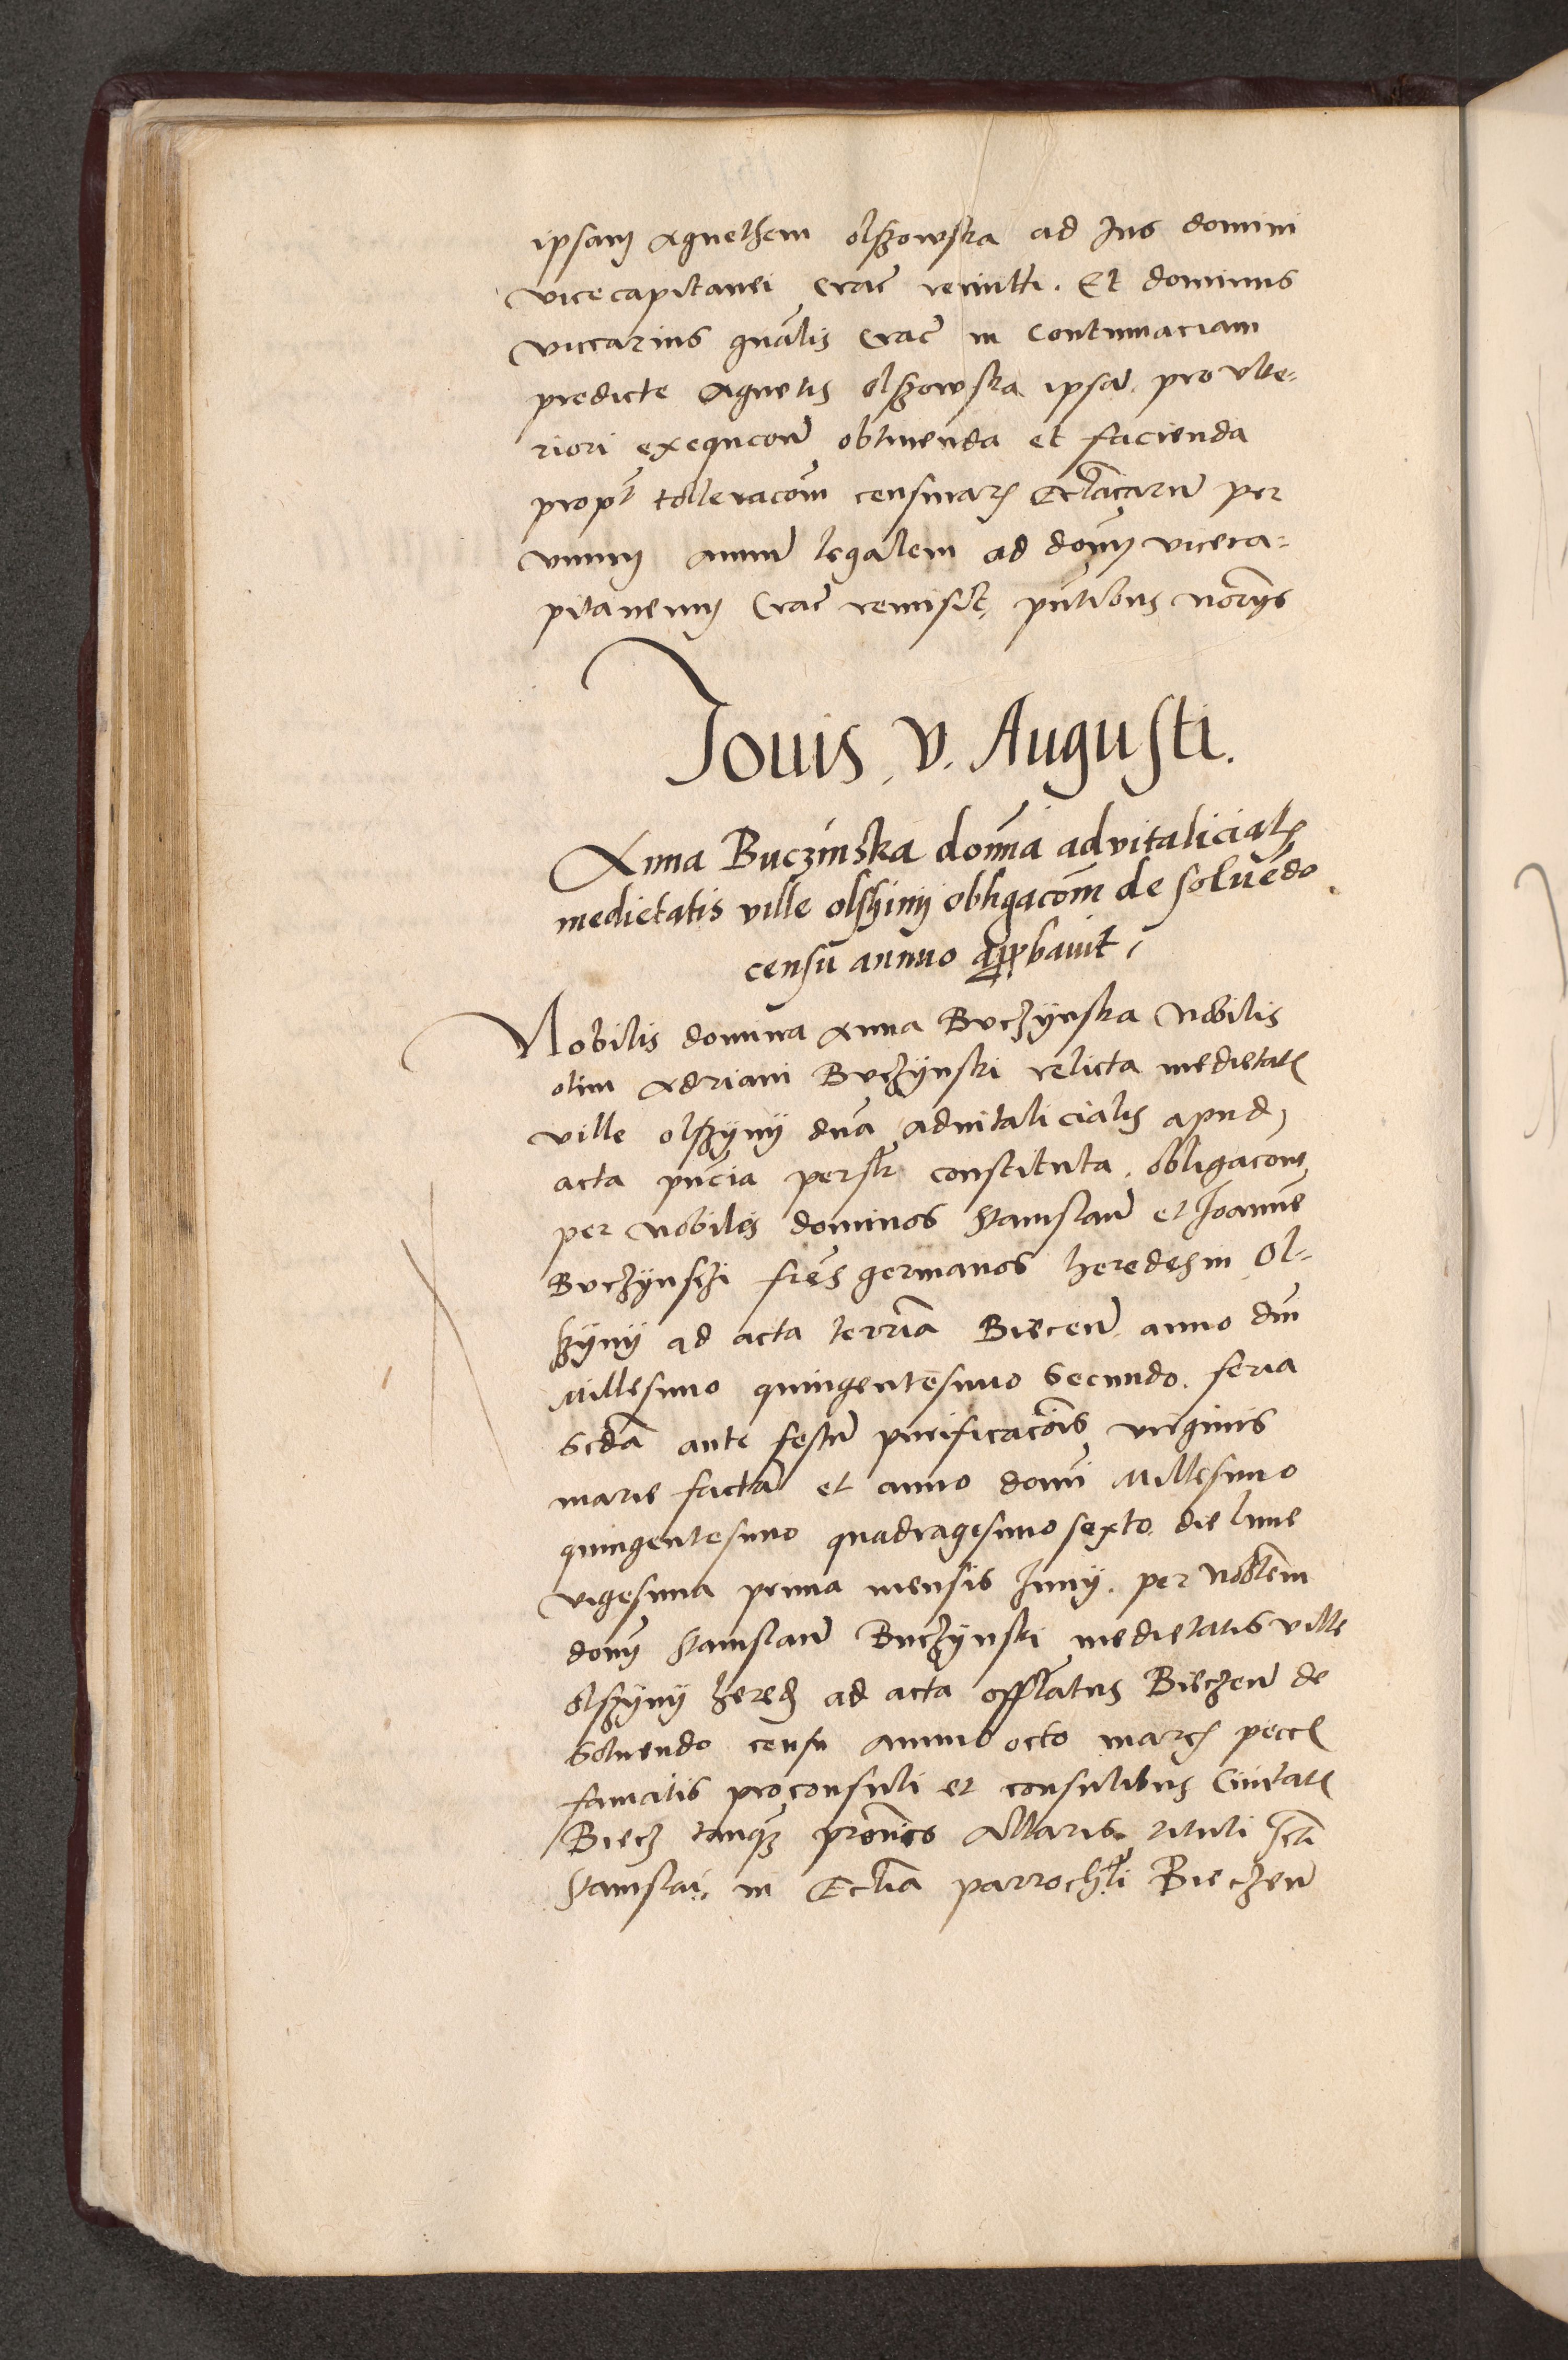 ipsam Agnethem olszowska ad Jus domini
vicecapitanei Crac̃ remitti. Et dominus
viccarius gnãlis Crac̃ in Contumaciam
predicte Agnetis olszowska ipsã pro ulte-
riori exequcõne obtinenda et facienda
propt̃ tolleracõm censurarũ Ecclãcarũ per
unum annũ legalem ad dom̃ viceca-
pitaneum Crac̃ remisit, pñtibus, norijs
Jouis v. Augusti.
Anna Buczinska domña advitalicial̃
medietatis ville olszinij obligacõm de soluẽdo
censu annuo approbauit
Nobilis domina Anna Buczÿnska Nobilis
olim Adriani Buczÿnski relicta medietat̃
ville olszÿnij dnã aduitalicialis apud
acta pñcia persĩr constituta, obligacõm
per nobiles dominos Stanislaũ et Joannẽ
Buczÿnskj frẽs germanos heredes in Ol-
szÿnij ad acta terrña Biecenñ anno dñi
Millesimo quingentesimo Secundo. feria
Scdã ante festũ purificacõis virginis
marie factã et anno domĩ Millesimo
quingentesimo quadragesimo sexto die lune
vigesima prima mensis Junij. per nobilẽm
dom̃ Stanislaũ Buczÿnski medietatis ville
olszÿnij hered̃ ad acta offlãtus Biecẽn de
Soluendo censu annuo octo marc̃ pecc̃
famatis proconsuli et consulibus Ciuitat̃
Biecz tanq̃ prouĩcs Altaris tituli scti
Stanislai, in Ecclĩa parrochli Biecẽn